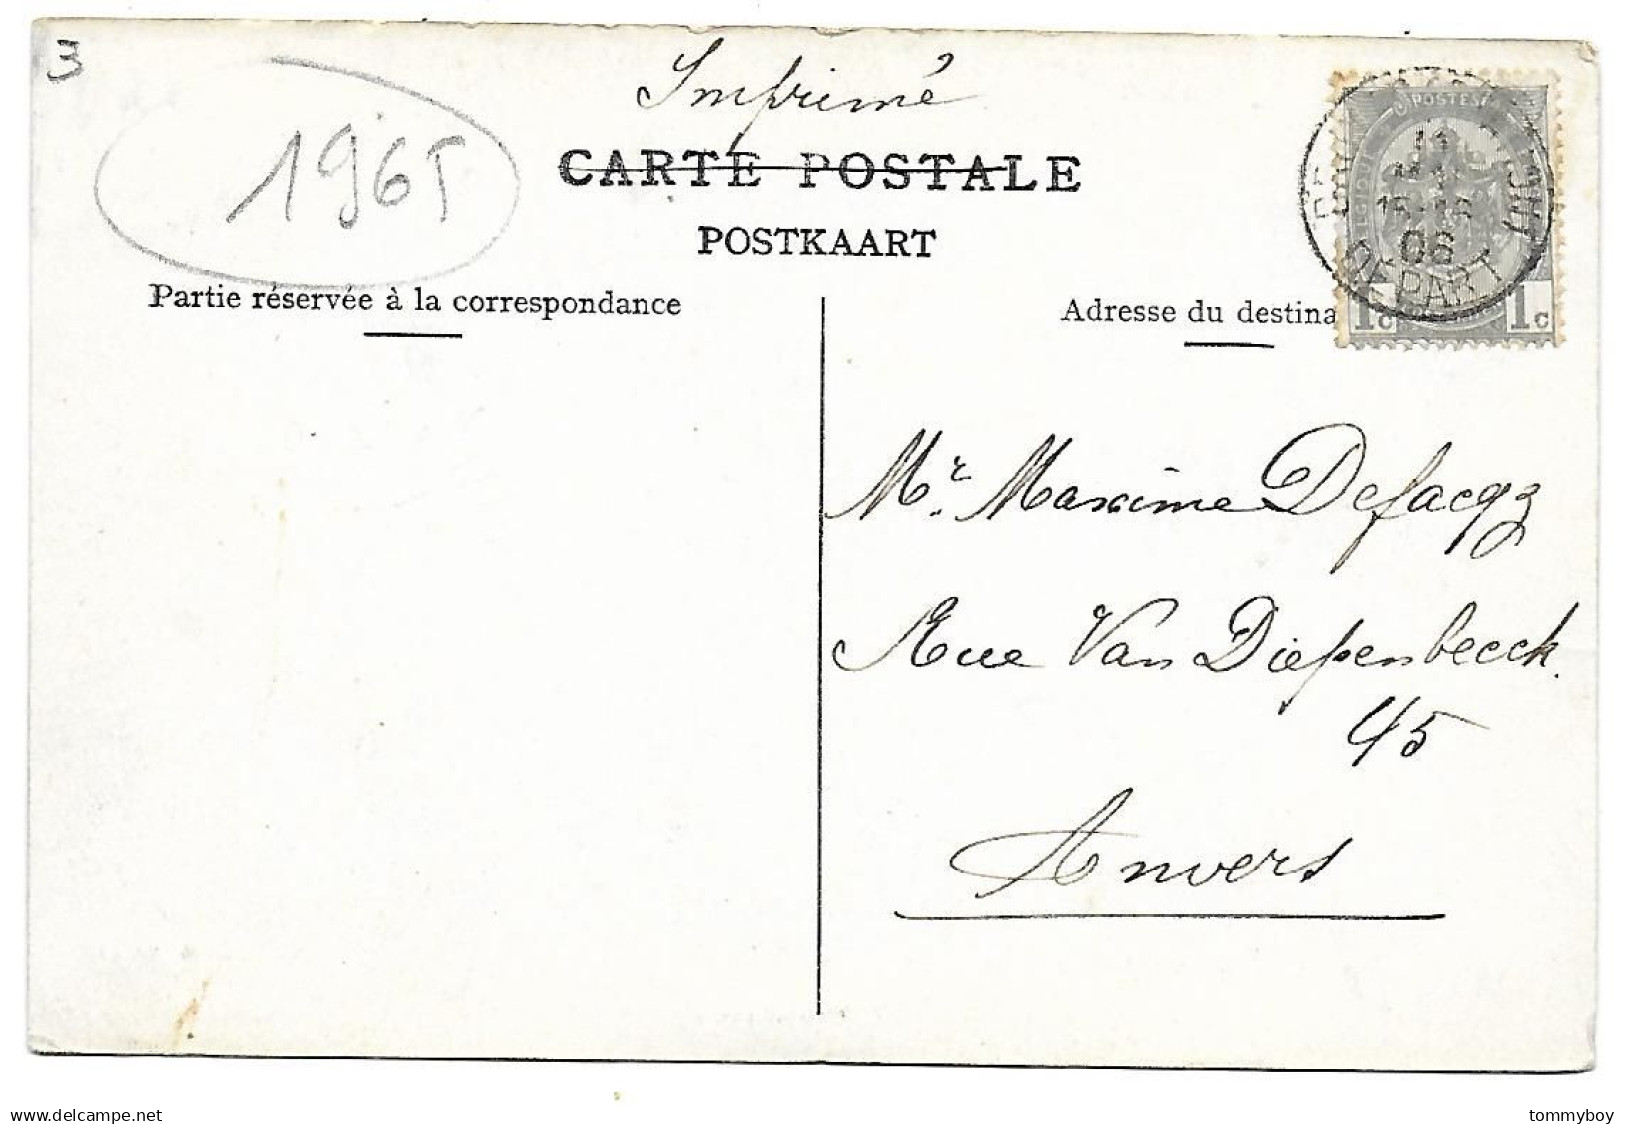 3
Imprimé
1965
CARTE POSTALE
POSTKAART
Partie réservée à la correspondance
Adresse du destina
POSTES
06
DEPART
1c 1c
Mr. Maxime Defacqz
Rue Van Diepenbeeck.
45
Anvers
www.delcampe.net
tommyboy